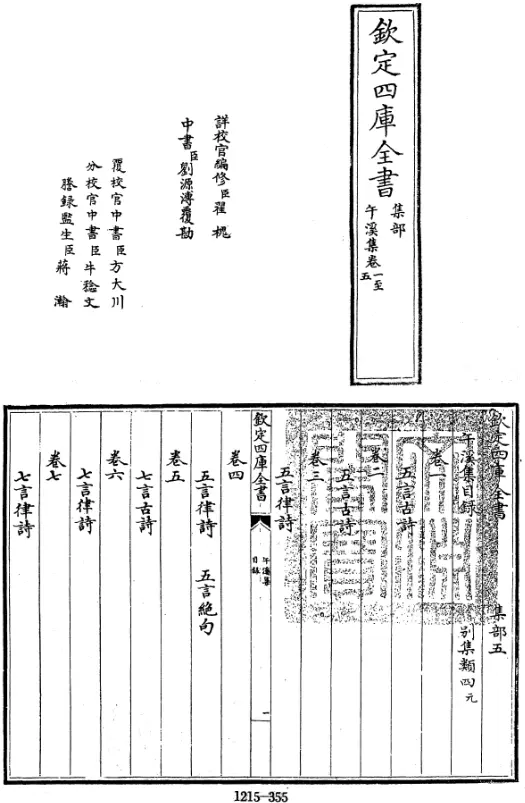 欽定四庫全書
集部
午溪集卷一至五
詳校官編修臣瞿槐
中書臣劉源溥覆勘
覆校官中書臣方大川
分校官中書臣牛稔文
謄録監生臣蔣瀚
欽定四庫全書 集部五
午溪集目録 别集類四元
卷一
五言古詩
卷二
五言古詩
卷三
五言律詩
欽定四庫全書 午溪集目録 一
卷四
五言律詩 五言絶句
卷五
七言古詩
卷六
七言律詩
卷七
七言律詩
1215-355